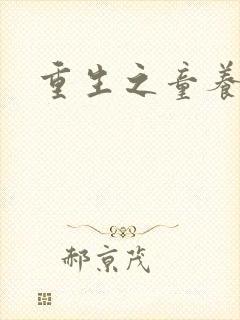 重生之童养
郝京茂